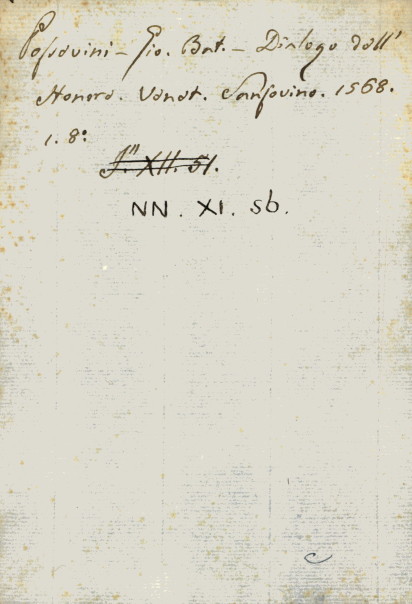 Possovini - Gio. Bat. - Dialogo dell'
Honore. Venet. Sansovino. 1568.
1. 8:
XII. 51.
NN. XI. sb.